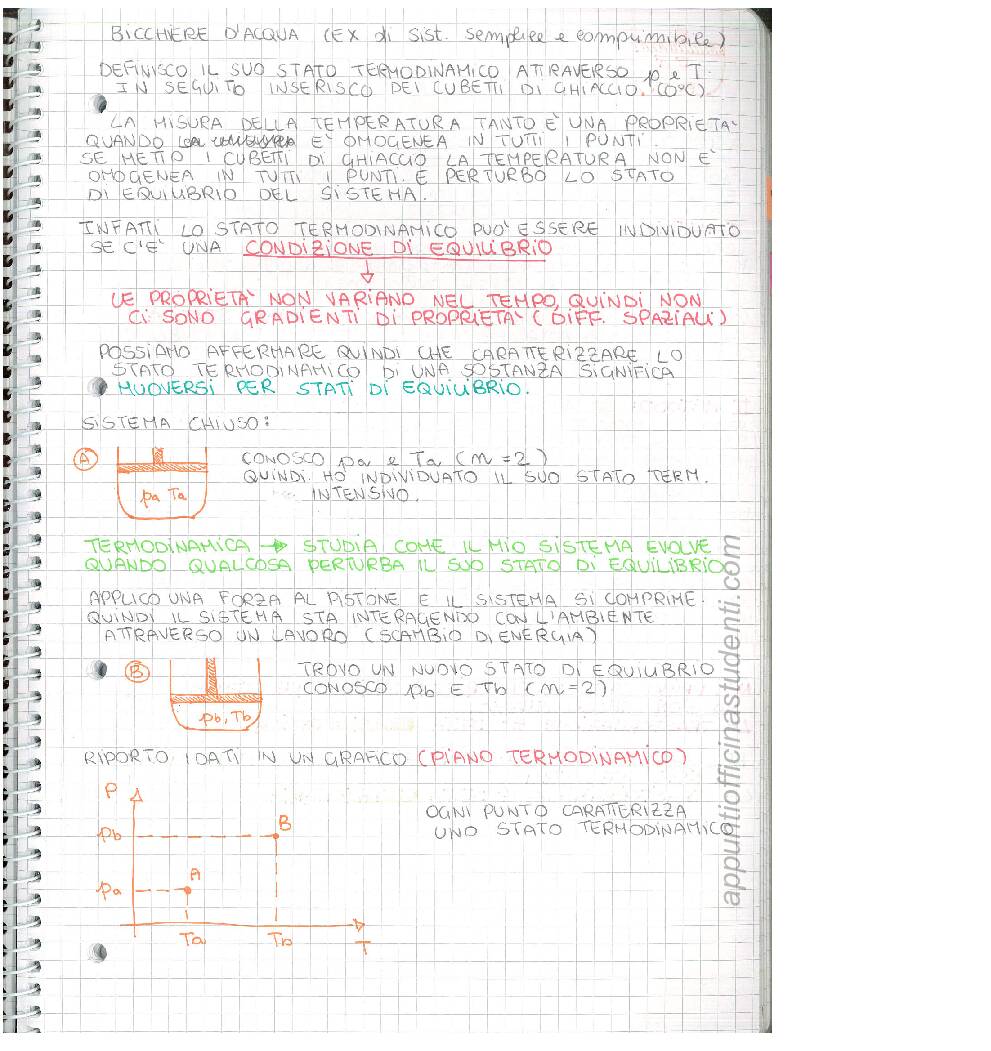 BICCHIERE D'ACQUA (EX di sist. semplice e comprimibile)
DEFINISCO IL SUO STATO TERMODINAMICO ATTRAVERSO p e T.
IN SEGUITO INSERISCO DEI CUBETTI DI GHIACCIO. (0°C)
LA MISURA DELLA TEMPERATURA TANTO E' UNA PROPRIETA'
QUANDO E' OMOGENEA IN TUTTI I PUNTI.
SE METTO I CUBETTI DI GHIACCIO LA TEMPERATURA NON E'
OMOGENEA IN TUTTI I PUNTI. E PERTURBO LO STATO
DI EQUILIBRIO DEL SISTEMA.
INFATTI LO STATO TERMODINAMICO PUO' ESSERE INDIVIDUATO
SE C'E' UNA CONDIZIONE DI EQUILIBRIO
LE PROPRIETA' NON VARIANO NEL TEMPO, QUINDI NON
CI SONO GRADIENTI DI PROPRIETA' (DIFF. SPAZIALI)
POSSIAMO AFFERMARE QUINDI CHE CARATTERIZZARE LO
STATO TERMODINAMICO DI UNA SOSTANZA SIGNIFICA
MUOVERSI PER STATI DI EQUILIBRIO.
SISTEMA CHIUSO:
A
pa Ta
CONOSCO pa e Ta (n=2)
QUINDI HO INDIVIDUATO IL SUO STATO TERM.
INTENSIVO.
TERMODINAMICA → STUDIA COME IL MIO SISTEMA EVOLVE
QUANDO QUALCOSA PERTURBA IL SUO STATO DI EQUILIBRIO
APPLICO UNA FORZA AL PISTONE E IL SISTEMA SI COMPRIME.
QUINDI IL SISTEMA STA INTERAGENDO CON L'AMBIENTE
ATTRAVERSO UN LAVORO (SCAMBIO DI ENERGIA)
B
pb, Tb
TROVO UN NUOVO STATO DI EQUILIBRIO
CONOSCO pb E Tb (n=2)
RIPORTO I DATI IN UN GRAFICO (PIANO TERMODINAMICO)
P
pb
B
pa
A
Ta
Tb
T
OGNI PUNTO CARATTERIZZA
UNO STATO TERMODINAMICO
appuntiofficinastudenti.com